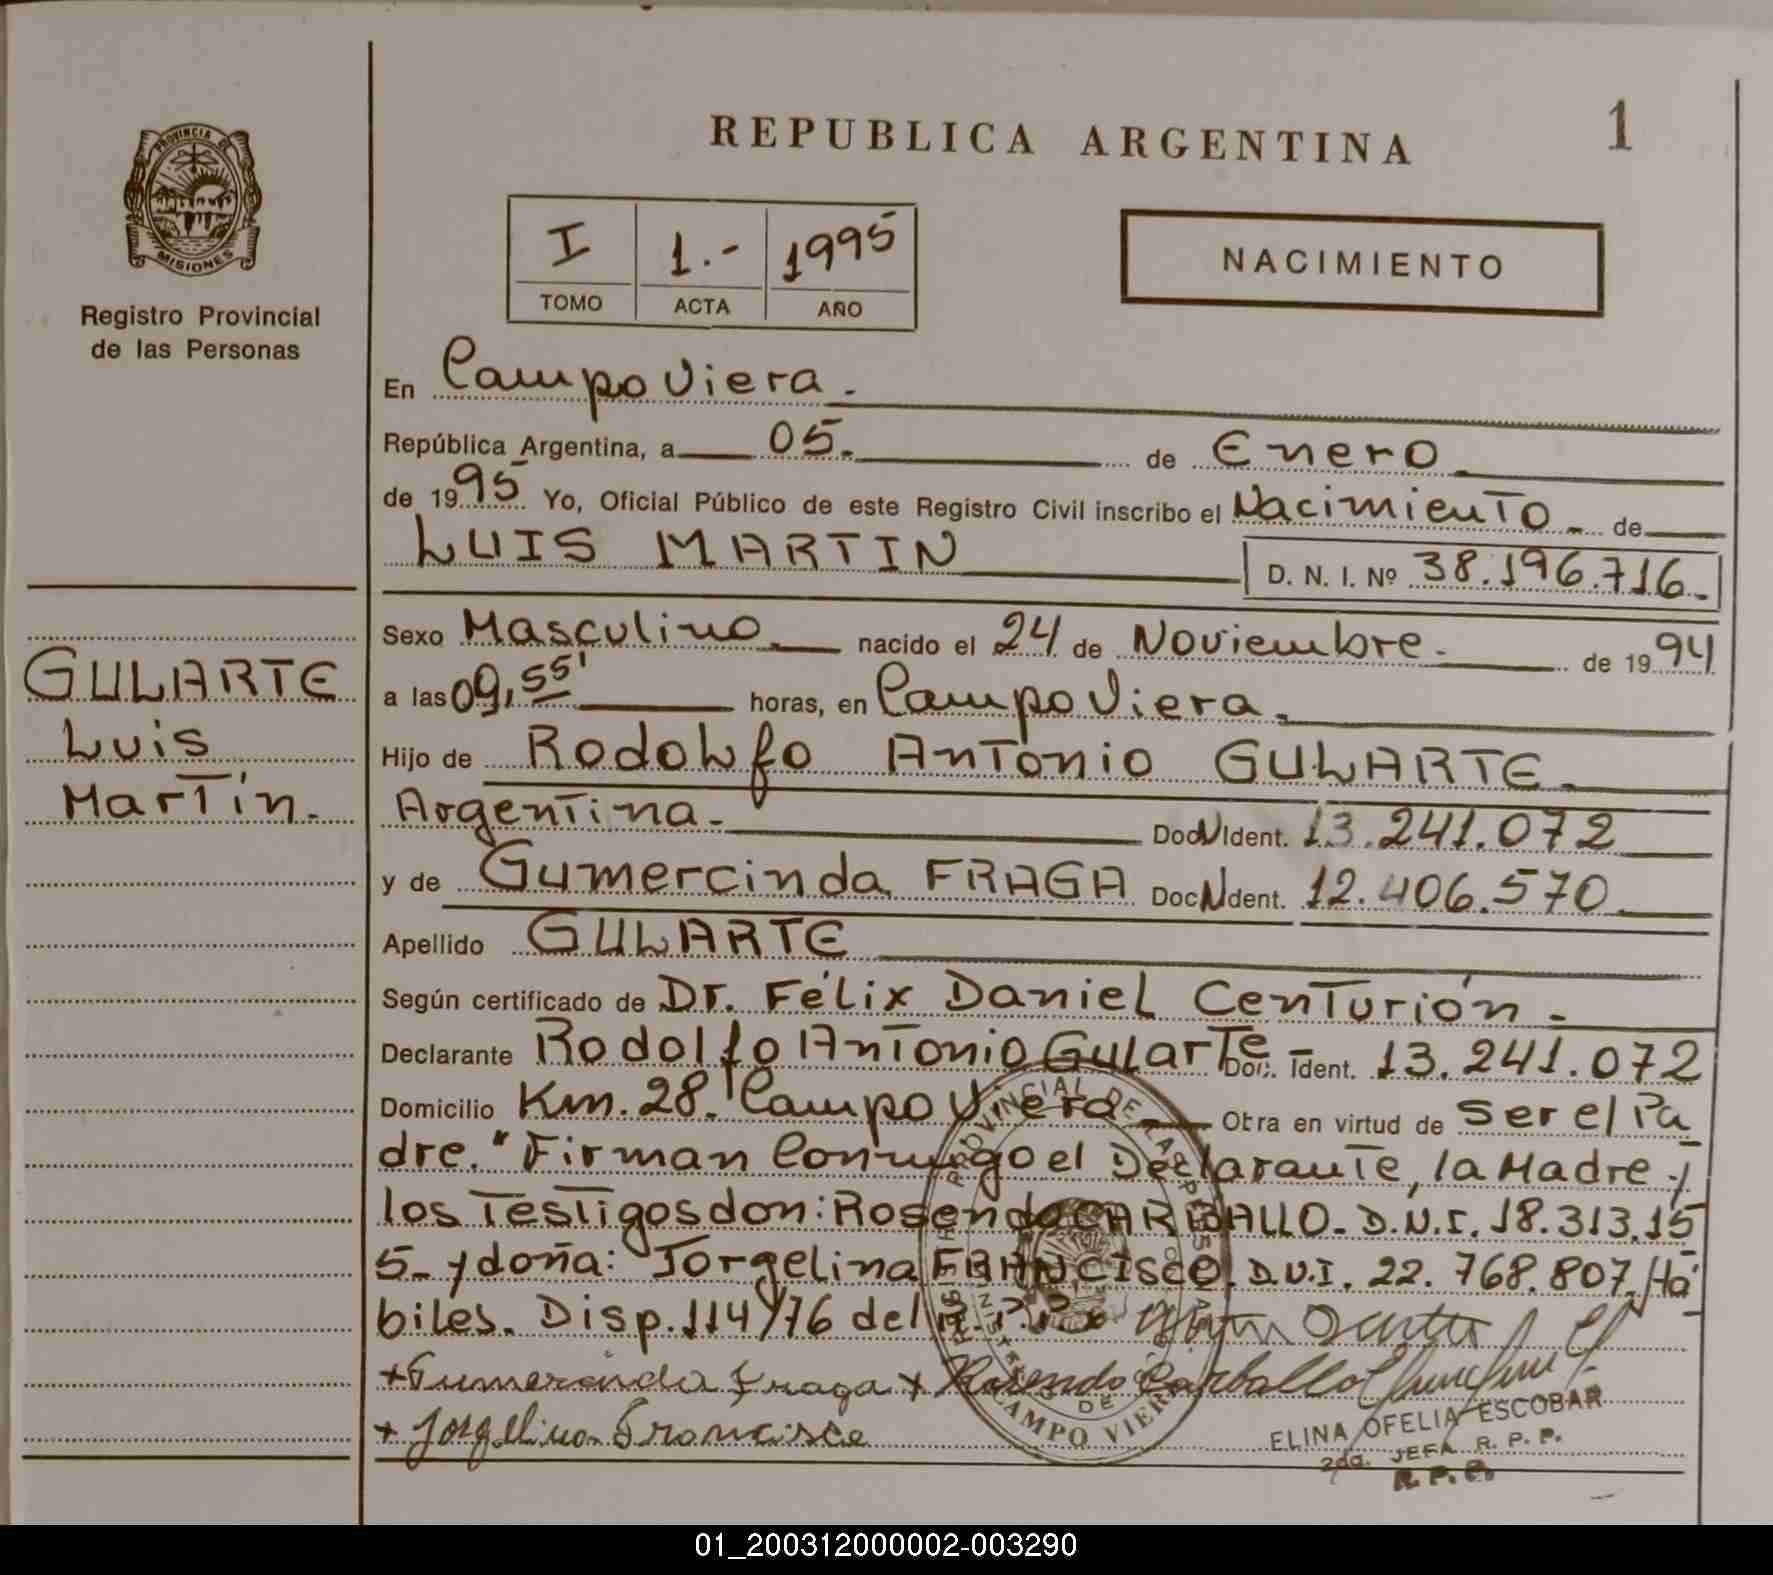 REPUBLICA ARGENTINA
1
PROVINCIA DE
MISIONES
Registro Provincial
de las Personas
I
1.-
1995
TOMO
ACTA
AÑO
NACIMIENTO
GULARTE
Luis
Martín.
En Campo Viera.
República Argentina, a 05. de Enero
de 1995 Yo, Oficial Público de este Registro Civil inscribo el Nacimiento de
LUIS MARTIN
D. N. I. Nº 38.196.716.
Sexo Masculino nacido el 24 de Noviembre. de 1994
a las 09,55' horas, en Campo Viera.
Hijo de Rodolfo Antonio GULARTE
Argentina. Doc N Ident. 13.241.072
y de Gumercinda FRAGA Doc N Ident. 12.406.570
Apellido GULARTE
Según certificado de Dr. Félix Daniel Centurión
Declarante Rodolfo Antonio Gularte Doc. Ident. 13.241.072
Domicilio Km. 28. Campo Viera Obra en virtud de ser el Pa
dre. "Firman Conmigo el Declarante, la Madre y
los Testigos don: Rosendo CARBALLO. D.N.I. 18.313.15
5. y doña: Jorgelina FRANCISCO. D.N.I. 22.768.807. Há
biles. Disp. 114/76 del R.P.P.
+ Gumercinda Fraga + Rosendo Carballo
+ Jorgelina Francisco
CAMPO VIERA
ELINA OFELIA ESCOBAR
2da. JEFA R. P. P.
R. P. P.
01_200312000002-003290